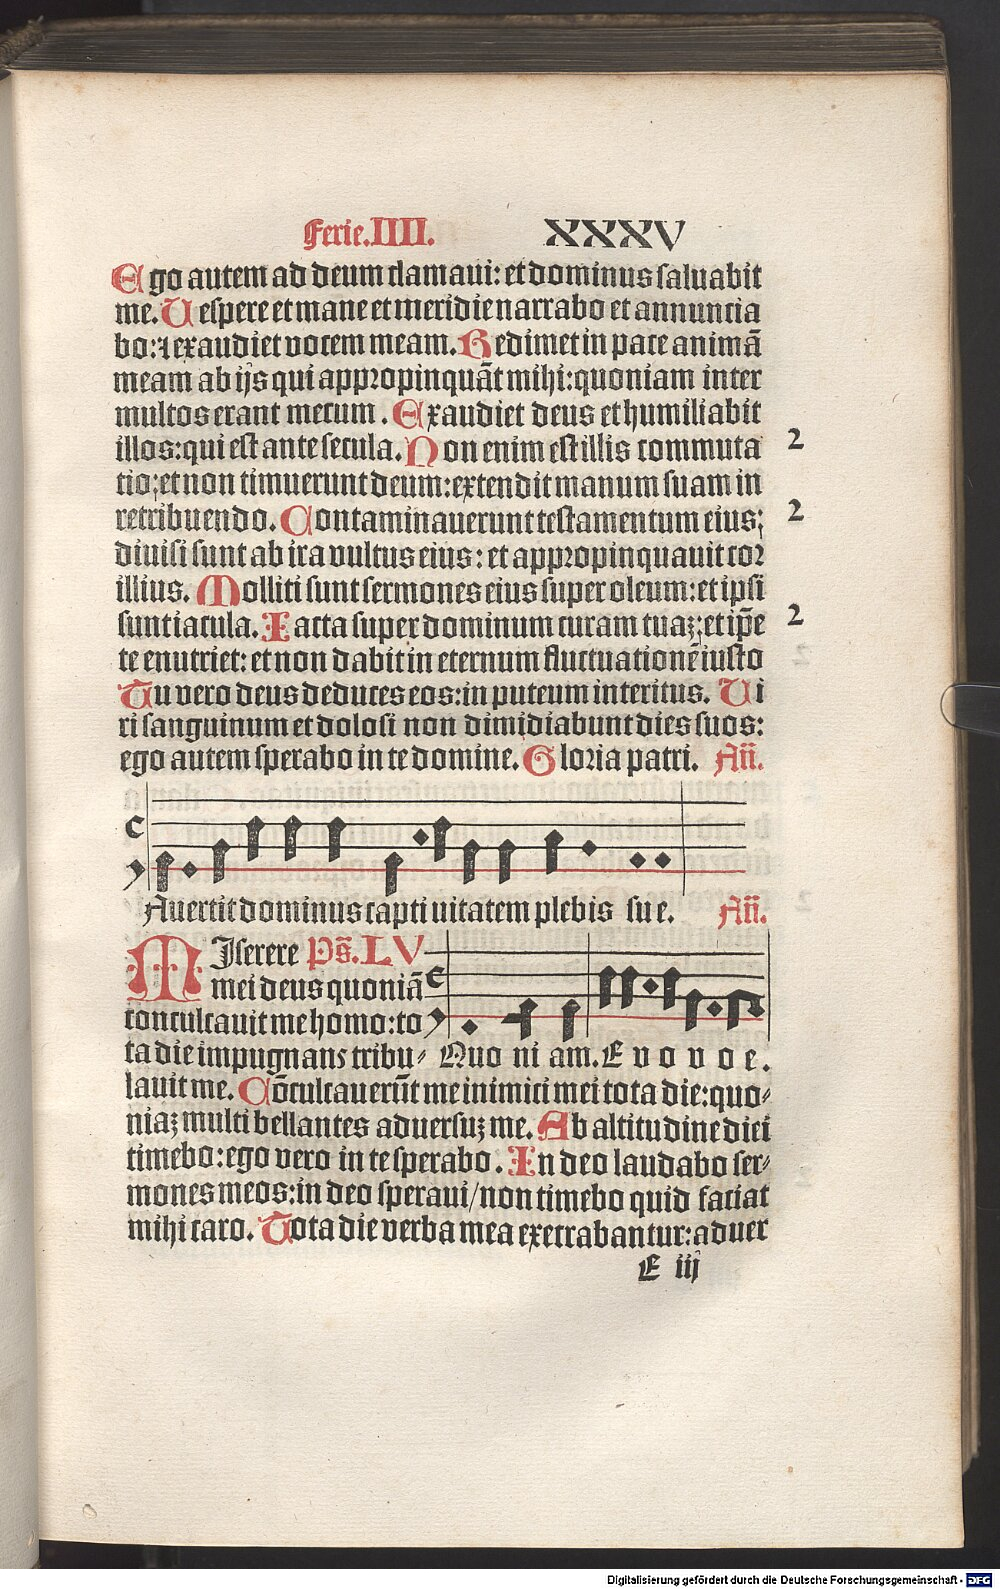 Ferie.IIII. XXXV
Ego autem ad deum clamaui: et dominus saluabit
me. Uespere et mane et meridie narrabo et annuncia
bo: ⁊ exaudiet vocem meam. Redimet in pace animā
meam ab ijs qui appropinquāt mihi: quoniam inter
multos erant mecum. Exaudiet deus et humiliabit
illos: qui est ante secula. Non enim est illis commuta
2
tio: et non timuerunt deum: extendit manum suam in
retribuendo. Contaminauerunt testamentum eius:
2
diuisi sunt ab ira vultus eius: et appropinquauit cor
illius. Molliti sunt sermones eius super oleum: et ipsi
sunt iacula. Iacta super dominum curam tuaʒ: et ip̄e
2
te enutriet: et non dabit in eternum fluctuationē iusto
Tu vero deus deduces eos: in puteum interitus. Ui
ri sanguinum et dolosi non dimidiabunt dies suos:
ego autem sperabo in te domine. Gloria patri. Añ.
Auertit dominus capti uitatem plebis sue. Añ.
MIserere Ps̄. LV
mei deus quoniā
conculcauit me homo: to
ta die impugnans tribu⸗ Quo ni am. E v o v o e.
lauit me. Cōculcauerūt me inimici mei tota die: quo⸗
niaʒ multi bellantes aduersuʒ me. Ab altitudine diei
timebo: ego vero in te sperabo. In deo laudabo ser⸗
mones meos: in deo speraui/ non timebo quid faciat
mihi caro. Tota die verba mea execrabantur: aduer
E iij
Digitalisierung gefördert durch die Deutsche Forschungsgemeinschaft - DFG